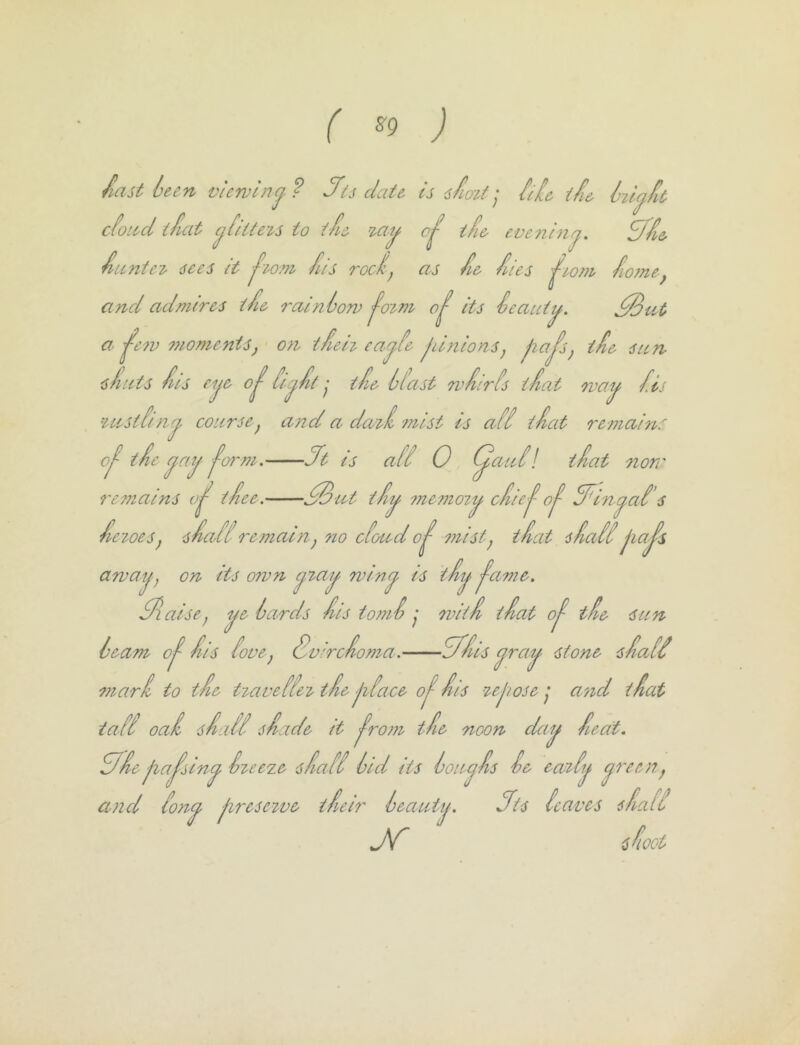 ( 89 )
hast been viewing? Its date is short; like the bright
cloud that glitters to the ray of the evening. The
hunter sees it from his rock, as he hies from home,
and admires the rainbow form of its beauty. But
a few moments, on their eagle pinions, paſs, the sun
shuts his eye of light; the blast whirls that way his
rustling course, and a dark mist is all that remains
of the gay form.——It is all O Gaul! that now
remains of thee.——But thy memory chief of Fingal's
heroes, shall remain; no cloud of mist, that shall paſs
away, on its own gray wing is thy fame.
Raise, ye bards his tomb; with that of the sun
beam of his love, Evirchoma.——This gray stone shall
mark to the traveller the place of his repose; and that
tall oak shall shade it from the noon day heat.
The paſsing breeze shall bid its boughs be early green,
and long preserve their beauty. Its leaves shall
N shoot